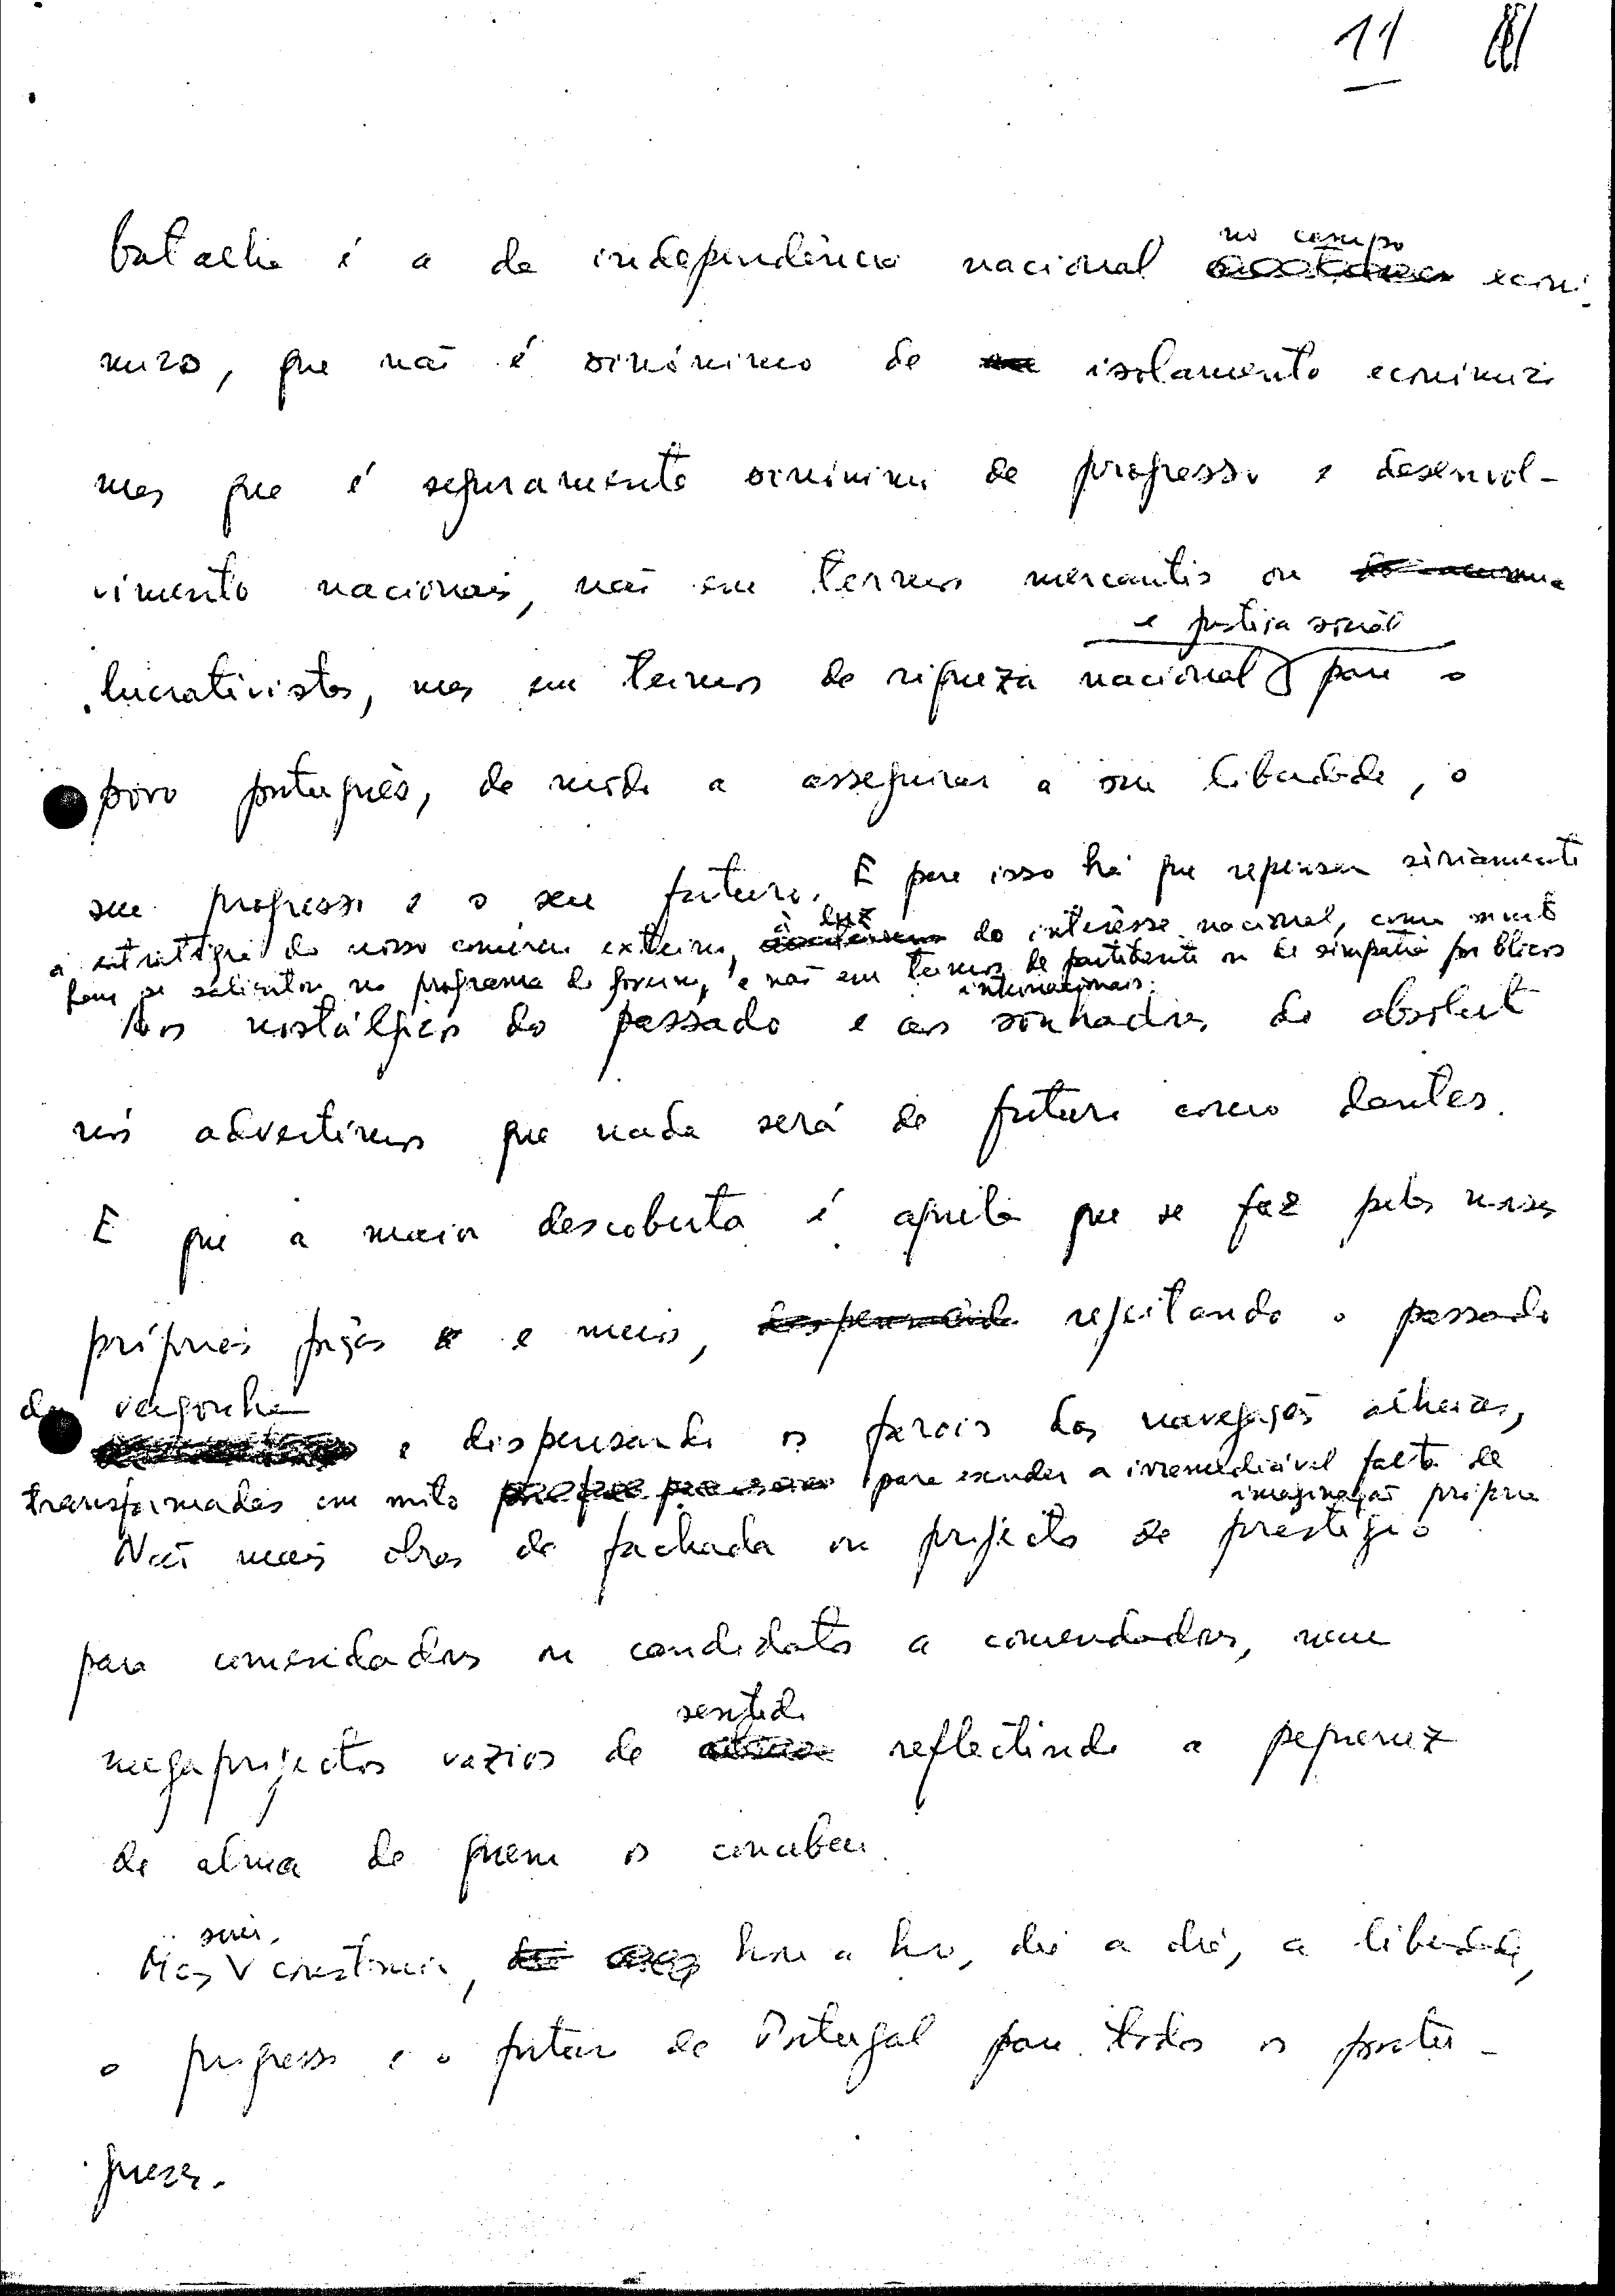 11
batalha é a da independência nacional no campo econó-
mico, que não é sinónimo de isolamento económico
mas que é seguramente sinónimo de progresso e desenvol-
vimento nacionais, não em termos mercantis ou
lucrativistas, mas em termos de riqueza nacional e justiça social para o
povo português, de modo a assegurar a sua liberdade, o
seu progresso e o seu futuro. E para isso há que repensar sèriamente
a estratégia do nosso comércio externo, à luz do interêsse nacional, como muito
bem se salientou no programa do governo, e não em termos de partidarite ou de simpatia por blocos
internacionais.
Aos nostálgicos do passado e aos sonhadores do absoluto
nós advertimos que nada será de futuro como dantes.
E que a maior descoberta é aquela que se faz pelas nossas
próprias forças e meios, rejeitando o passado
da vergonha e dispensando os faróis das navegações alheias,
transformadas em mito para esconder a irremediável falta de
imaginação própria
Não mais obras de fachada ou projectos de prestígio
para comendadores ou candidatos a comendadores, nem
megaprojectos vazios de sentido reflectindo a pequenez
de alma de quem os concebeu.
Mas sim, construir, hora a hora, dia a dia, a liberdade,
o progresso e o futuro de Portugal para todos os portu-
gueses.